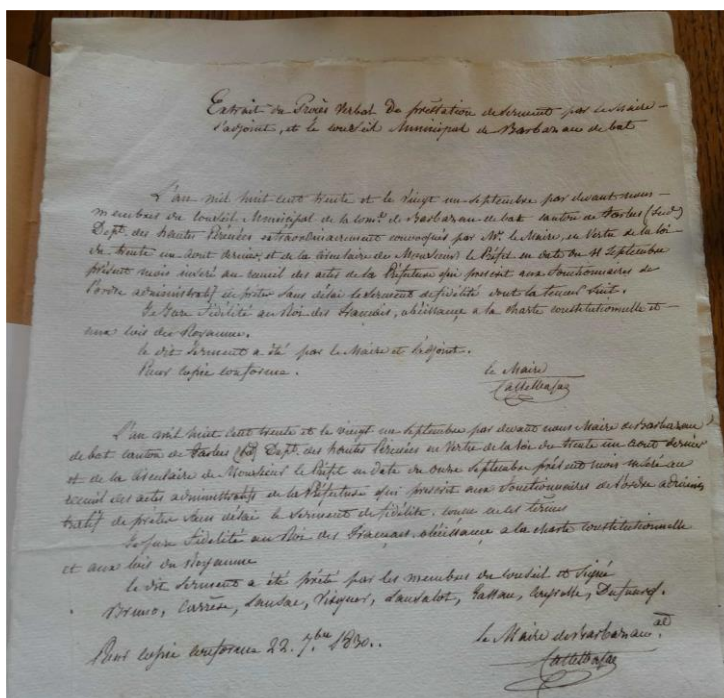 Extrait du Procès Verbal de préstation de Serment par le Maire
l'adjoint, et le conseil Municipal de Barbazan debat
L'an mil huit cent trente et le vingt un septembre par devant nous
membres du conseil Municipal de la com.e de Barbazan debat canton de Tarbes (Sud)
Dept. des hautes Pirénées extraordinairement convoqués par Mr. le Maire, en Vertu de la loi
du trente un aout dernier, et de la circulaire de Monsieur le Préfet en date du 11 Septembre
présent mois inseré au recueil des actes de la Préfecture qui prescrit aux fonctionnaires de
l'ordre administratif de préter sans délai le Serment de fidélité dont la teneur Suit.
Je Jure fidélité au Roi des français, obéissance a la charte constitutionnelle et
aux lois du Royaume.
le dit Serment a été par le Maire et l'adjoint.
Pour copie conforme. le Maire
L'an mil huit cent trente et le vingt un septembre par devant nous Maire de Barbazan
debat canton de Tarbes Dept. des hautes Pirénées en Vertu de la loi du trente un aout dernier
et de la circulaire de Monsieur le Préfet en date du onze Septembre présent mois inseré au
recueil des actes administratifs de la Préfecture qui prescrit aux fonctionnaires de l'ordre adminis
tratif de préter sans délai le Serment de fidélité en ces termes
Je Jure fidélité au Roi des français, obéissance a la charte constitutionnelle
et aux lois du Royaume
le dit Serment a été prété par les membres du conseil et Signé
Bruno, Carrère, Lansac, Lansalot,
Pour copie conforme 22. 7.bre 1830. le Maire de Barbazan